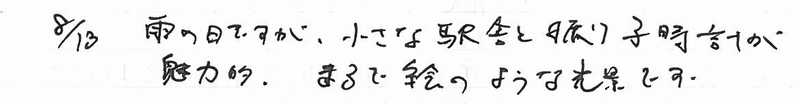 8/13 雨の日ですが、小さな駅舎と振り子時計が
魅力的. まるで絵のような光景です.